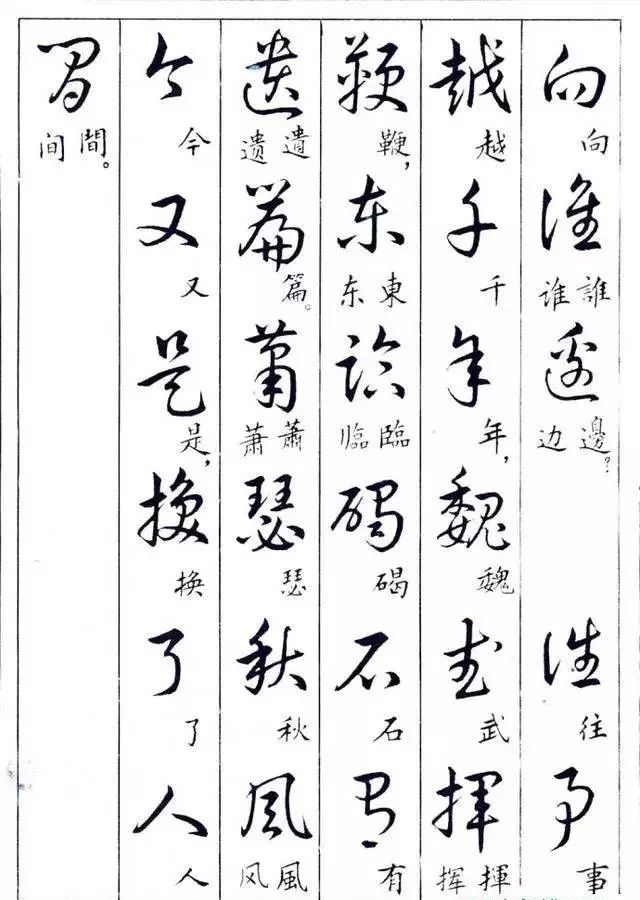 向誰邊往事
向誰邊?往事
谁边
越千年魏武揮
越千年,魏武揮
挥
鞭东臨碣石有
鞭,東臨碣石有
东临
遺篇蕭瑟秋風
遺篇。蕭瑟秋風
遗萧风
今又是换了人
今又是,换了人
間
間。
间